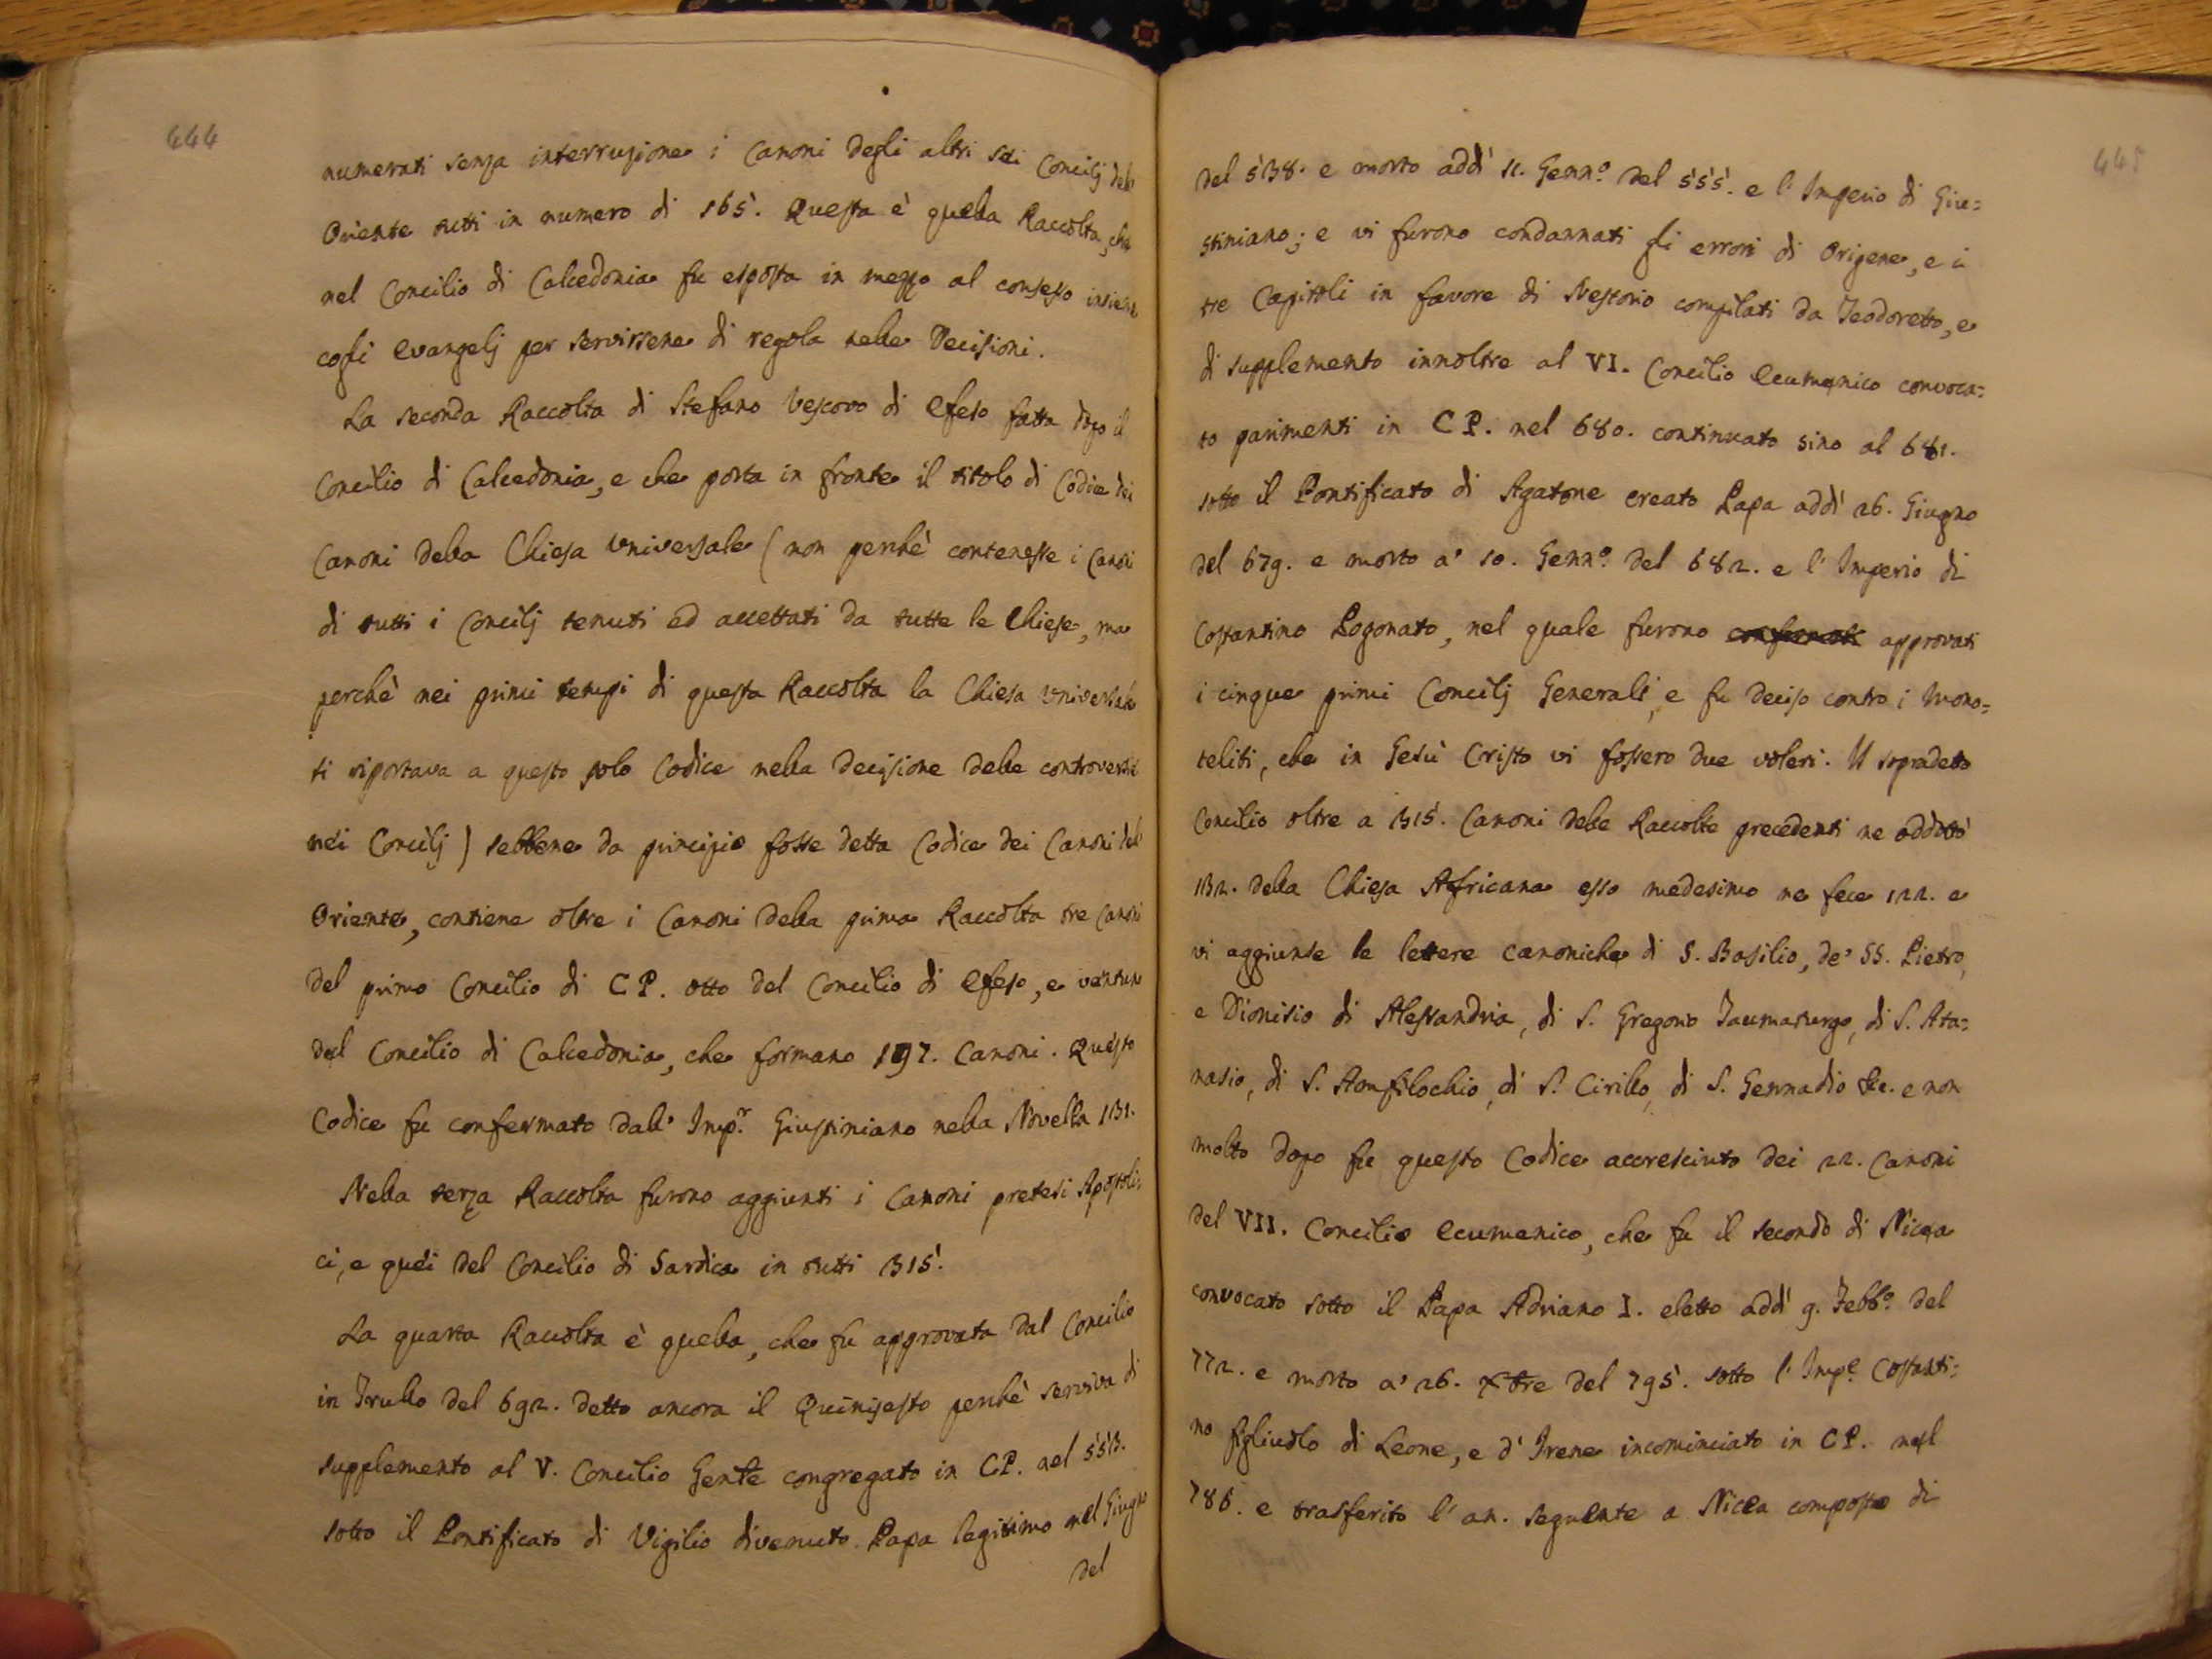 444
numerati senza interruzione i Canoni degli altri sei Concilj dell'
Oriente tutti in numero di 165. Questa è quella Raccolta, che
nel Concilio di Calcedonia fu esposta in mezzo al consesso insieme
cogli Evangelj per servirsene di regola nelle Decisioni.
La seconda Raccolta di Stefano Vescovo di Efeso fatta dopo il
Concilio di Calcedonia, e che porta in fronte il titolo di Codice dei
Canoni della Chiesa Universale (non perchè contenesse i Canoni
di tutti i Concilj tenuti ed accettati da tutte le Chiese, ma
perchè nei primi tempi di questa Raccolta la Chiesa Universale
si riportava a questo solo Codice nella decisione delle controversie
nei Concilj) sebbene da principio fosse detta Codice dei Canoni dell'
Oriente, contiene oltre i Canoni della prima Raccolta tre Canoni
del primo Concilio di CP. otto del Concilio di Efeso, e ventun
del Concilio di Calcedonia, che formano 197. Canoni. Questo
Codice fu confermato dall' Imp.r Giustiniano nella Novella 131.
Nella terza Raccolta furono aggiunti i Canoni pretesi Apostoli=
ci, e quei del Concilio di Sardica in tutti 315.
La quarta Raccolta è quella, che fu approvata dal Concilio
in Trullo del 692. detto ancora il Quinisesto perchè serviva di
supplemento al V. Concilio Gen̅le congregato in CP. nel 553.
sotto il Pontificato di Vigilio divenuto Papa legitimo nel Giugno
del
445
del 538. e morto addì 11. Genn.o del 555. e l' Imperio di Giu=
stiniano; e vi furono condannati gli errori di Origene, e i
tre Capitoli in favore di Nestorio compilati da Teodoretto, e
di supplemento innoltre al VI. Concilio Ecumenico convoca=
to parimenti in CP. nel 680. continuato sino al 681.
sotto il Pontificato di Agatone creato Papa addì 26. Giugno
del 679. e morto a' 10. Genn.o del 682. e l' Imperio di
Costantino Pogonato, nel quale furono approvati
i cinque primi Concilj Generali, e fu deciso contro i Mono=
teliti, che in Gesù Cristo vi fossero due voleri. Il sopradetto
Concilio oltre a 315. Canoni delle Raccolte precedenti ne addottò
132. della Chiesa Africana esso medesimo ne fece 122. e
vi aggiunse le lettere canoniche di S. Basilio, de' SS. Pietro,
e Dionisio di Alessandria, di S. Gregorio Taumaturgo, di S. Ata=
nasio, di S. Amfilochio, di S. Cirillo, di S. Gennadio &c. e non
molto dopo fu questo Codice accresciuto dei 22. Canoni
del VII. Concilio Ecumenico, che fu il secondo di Nicea
convocato sotto il Papa Adriano I. eletto addì 9. Febb.o del
772. e morto a' 26. Xbre del 795. sotto l' Imp.e Costanti=
no figliuolo di Leone, e d' Irene incominciato in CP. nel
786. e trasferito l' an. seguente a Nicea composto di